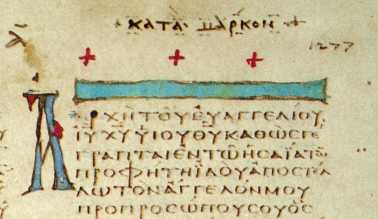 ΚΑΤΑ ΜΑΡΚΟΝ
1277
ΑΡΧΗΤΟΥΕΥΑΓΓΕΛΙΟΥ
ΙΥΧΥΥΙΟΥΘΥΚΑΘΩΣΓΕ
ΓΡΑΠΤΑΙΕΝΤΩΗΣΑΪΑΤΩ
ΠΡΟΦΗΤΗΙΔΟΥΑΠΟΣΤΕΛ
ΛΩΤΟΝΑΓΓΕΛΟΝΜΟΥ
ΠΡΟΠΡΟΣΩΠΟΥΣΟΥΟΣ